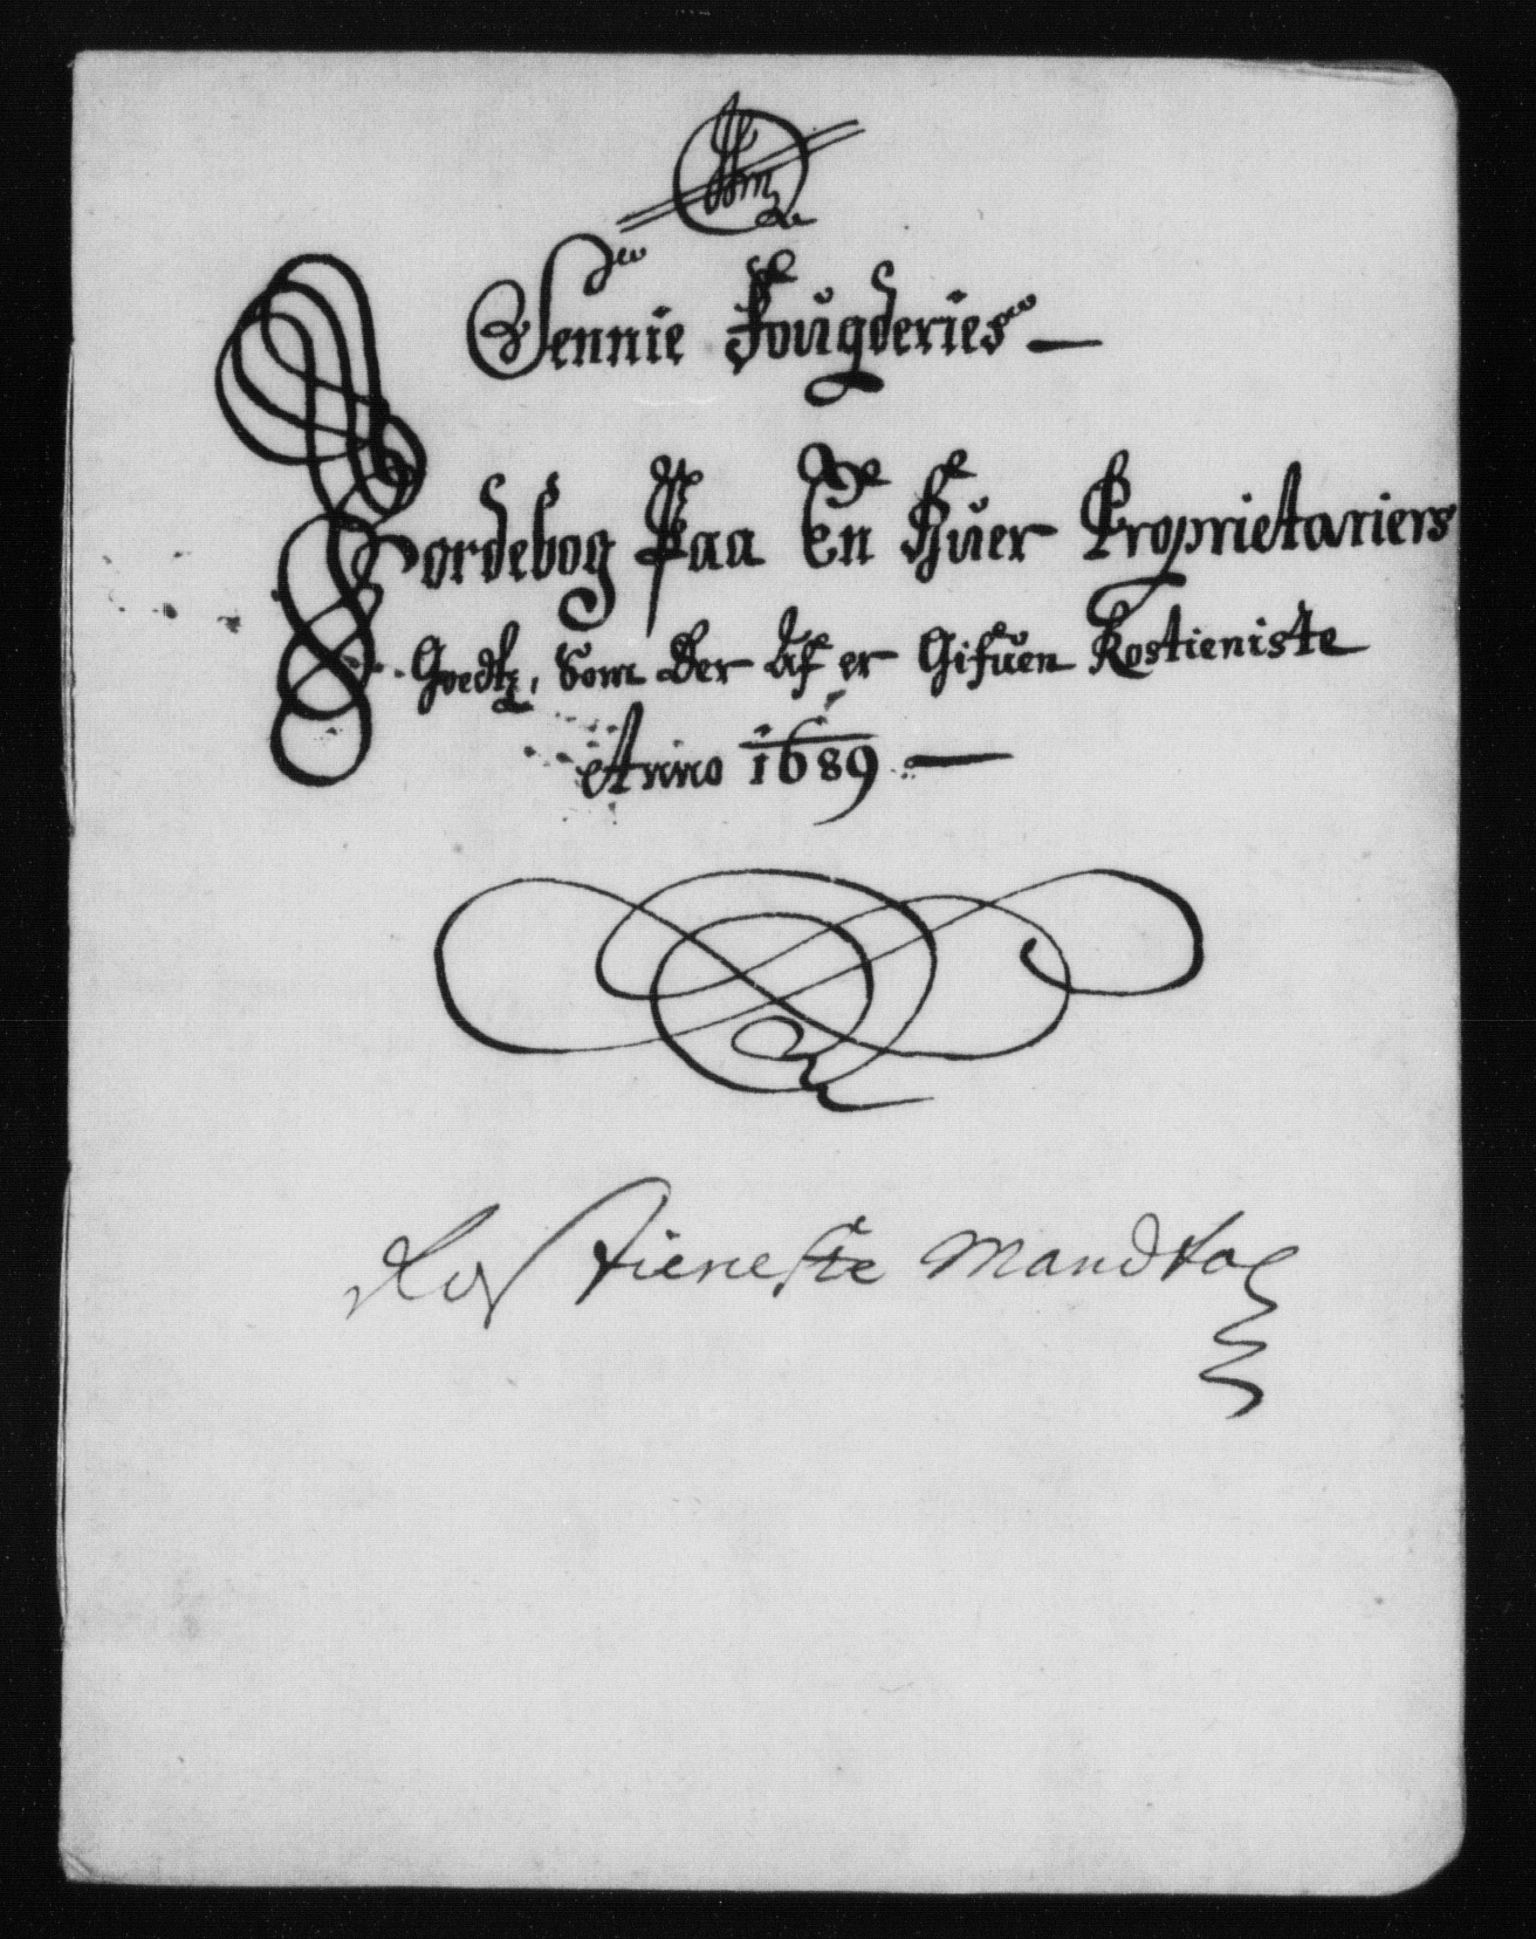 Sennie Fougderies
Jordebog Paa En Huer Proprietariers
Goedtz, Som Der Af er Gifuen Rostieniste
Anno 1689
Ros tieneste Mandtal